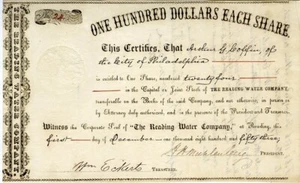 THE READING WATER COMPANY
ONE HUNDRED DOLLARS EACH SHARE.
This Certifies, That Archer G. Coffin, of
the City of Philadelphia
is entitled to One Share, numbered twenty four,
in the Capital or Joint Stock of THE READING WATER COMPANY,
transferable on the Books of the said Company, and not otherwise, in person, or
by Attorney duly authorized, and in the presence of the President and Treasurer.
Witness the Corporate Seal of "The Reading Water Company," at Reading, this
first day of December one thousand eight hundred and fifty three,
PRESIDENT
Wm Eckert TREASURER.